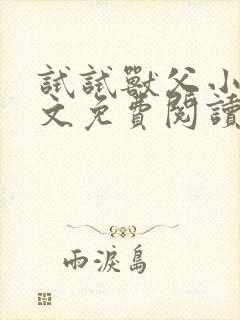 試試獸父小
文免費閱讀
雨淚島